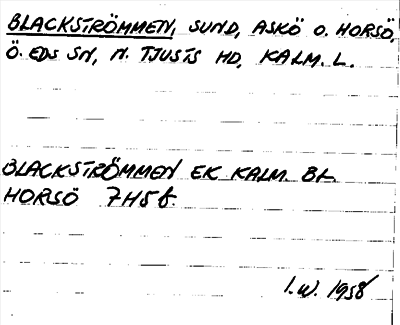 BLACKSTRÖMMEN, SUND, ASKÖ O. HORSÖ,
Ö. EDS SN, N. TJUSTS HD, KALM. L.
BLACKSTRÖMMEN EK KALM. BL
HORSÖ 7H5f.
I.W. 1958